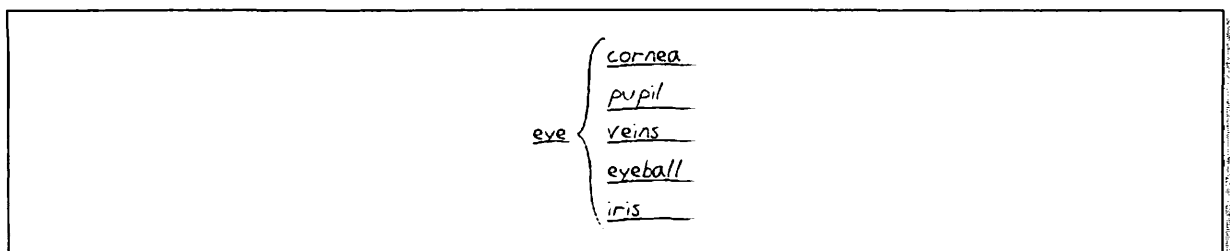 cornea
pupil
eye
veins
eyeball
iris